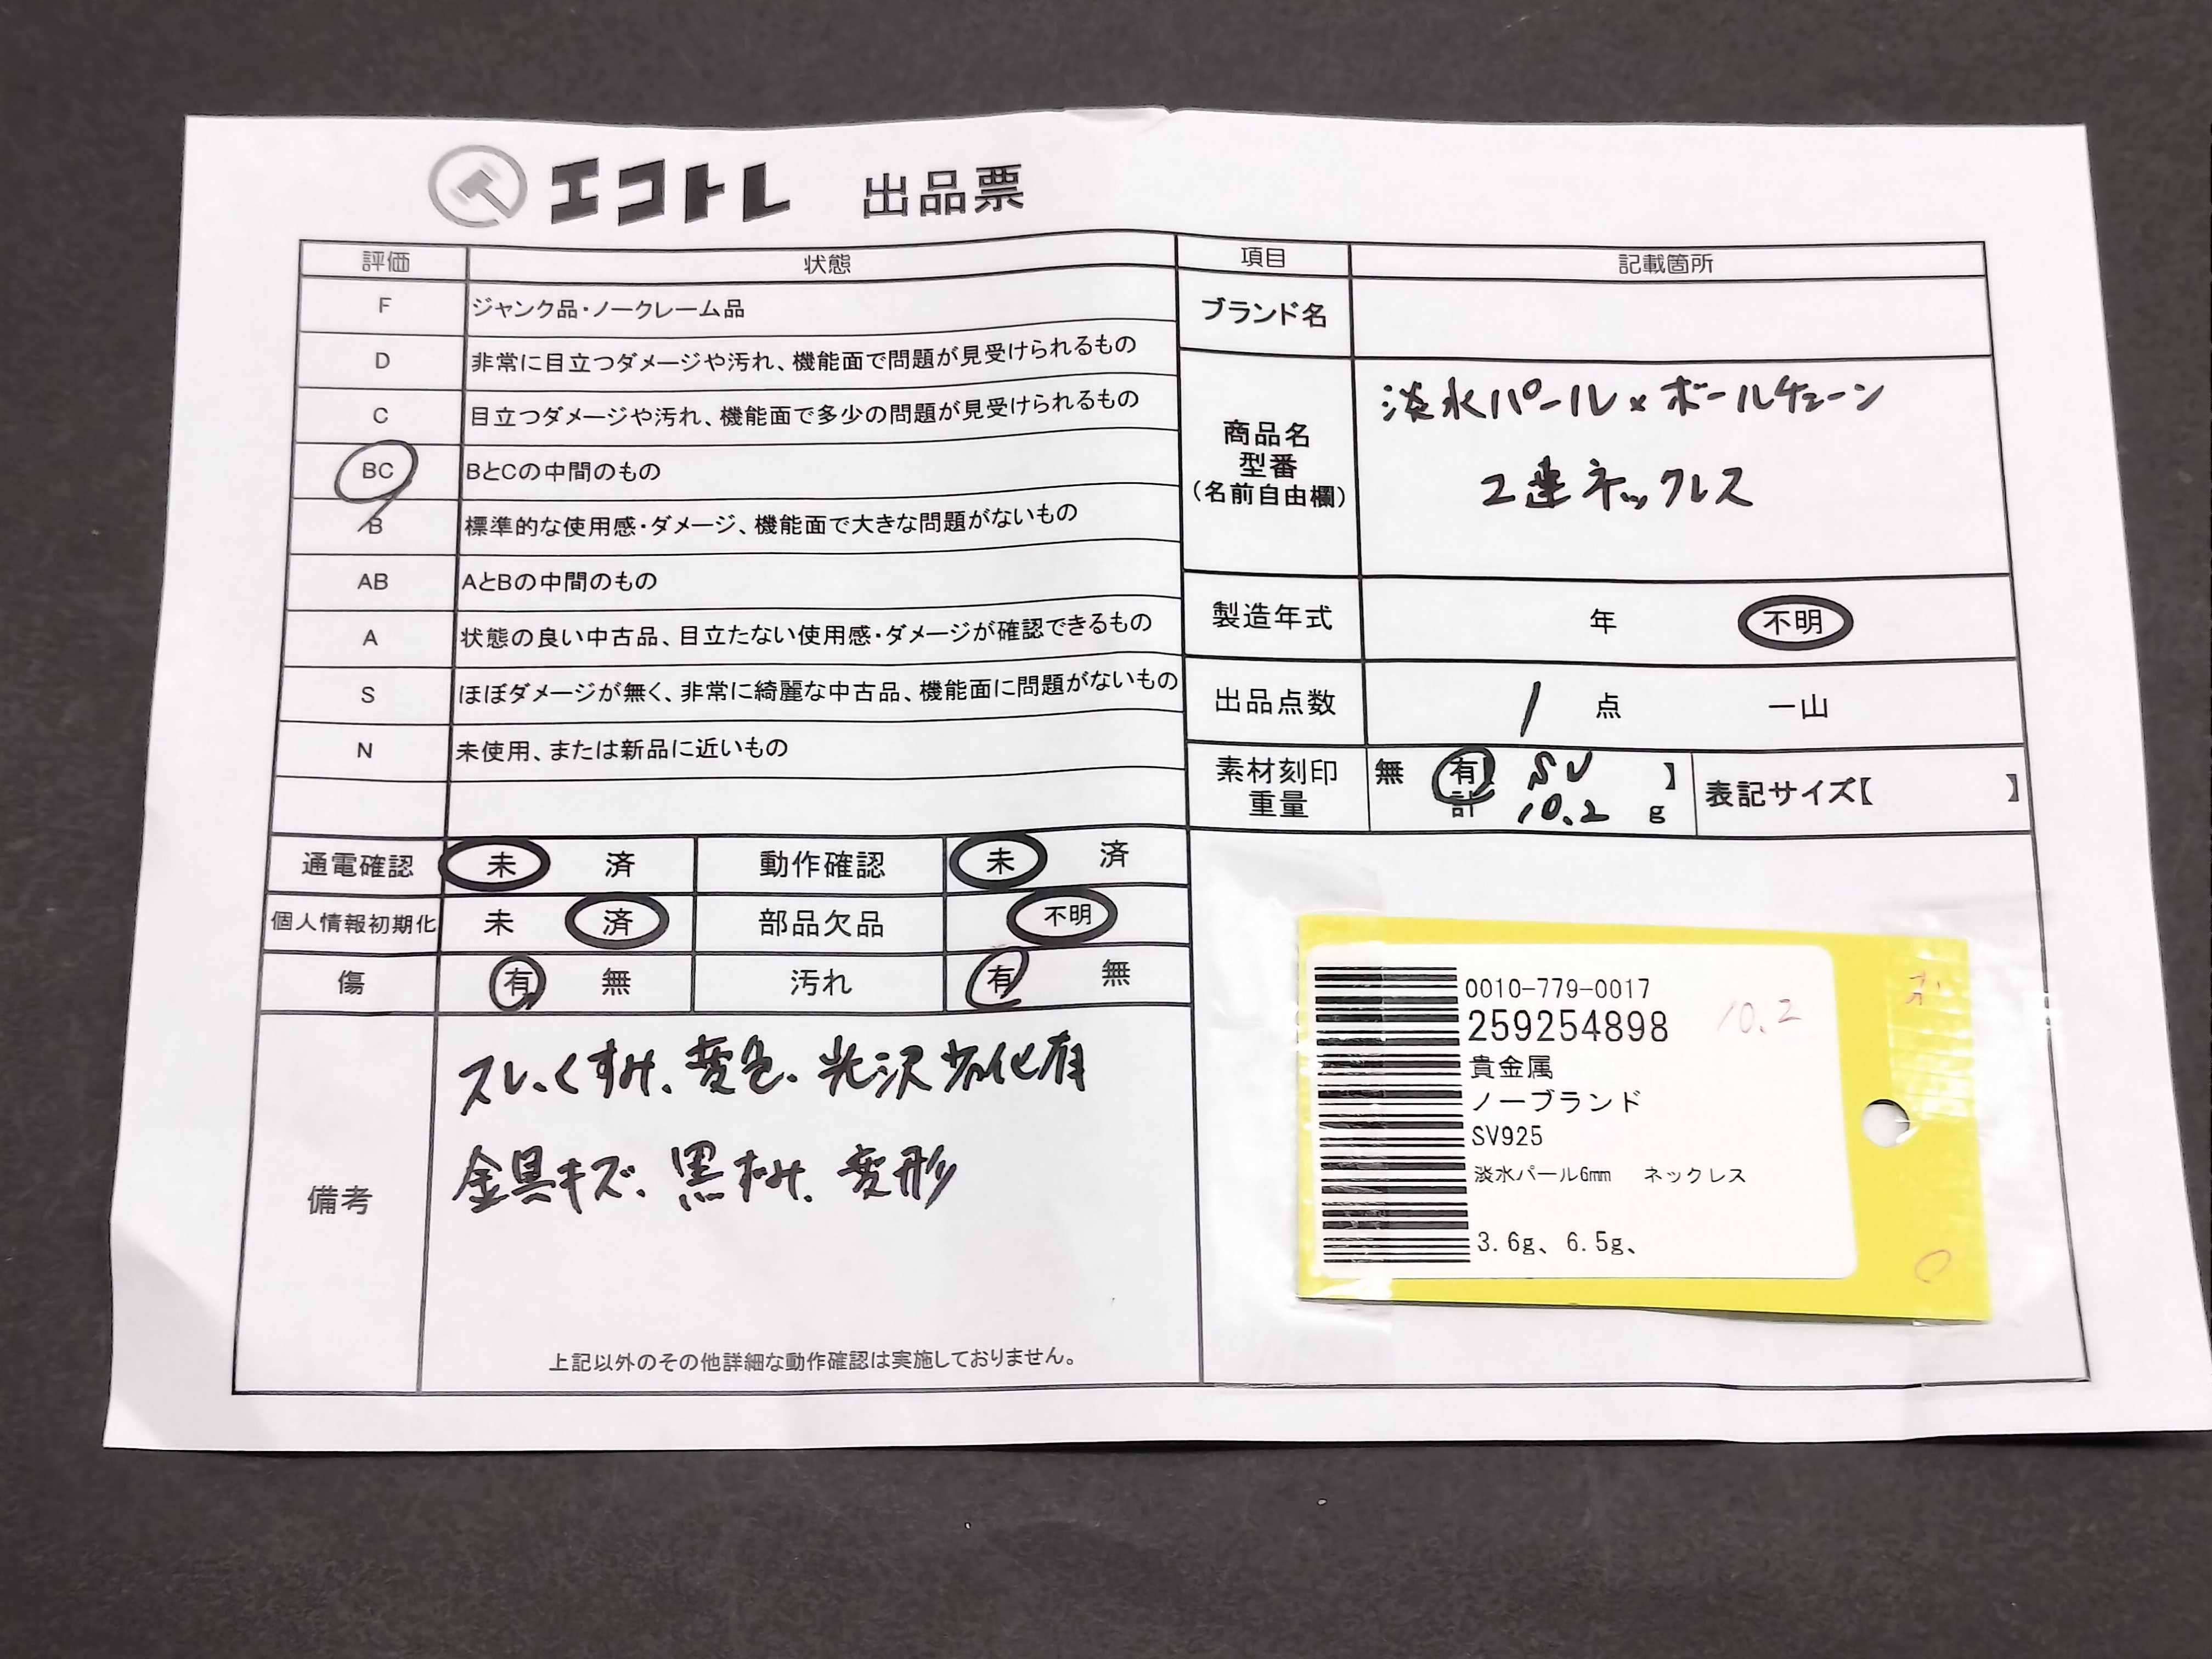 エコトレ 出品票
評価 状態
F ジャンク品・ノークレーム品
D 非常に目立つダメージや汚れ、機能面で問題が見受けられるもの
C 目立つダメージや汚れ、機能面で多少の問題が見受けられるもの
BC BとCの中間のもの
B 標準的な使用感・ダメージ、機能面で大きな問題がないもの
AB AとBの中間のもの
A 状態の良い中古品、目立たない使用感・ダメージが確認できるもの
S ほぼダメージが無く、非常に綺麗な中古品、機能面に問題がないもの
N 未使用、または新品に近いもの
通電確認 未 済 動作確認 未 済
個人情報初期化 未 済 部品欠品 不明
傷 有 無 汚れ 有 無
備考
スレ、くすみ、変色、光沢劣化有
金具キズ、黒ずみ、変形
上記以外のその他詳細な動作確認は実施しておりません。
項目 記載箇所
ブランド名
商品名
型番
(名前自由欄)
淡水パール×ボールチェーン
2連ネックレス
製造年式 年 不明
出品点数 1 点 一山
素材刻印 無 有 SV 】
重量 計 10.2 g
表記サイズ【 】
0010-779-0017
259254898
10.2
貴金属
ノーブランド
SV925
淡水パール6mm ネックレス
3.6g、6.5g、